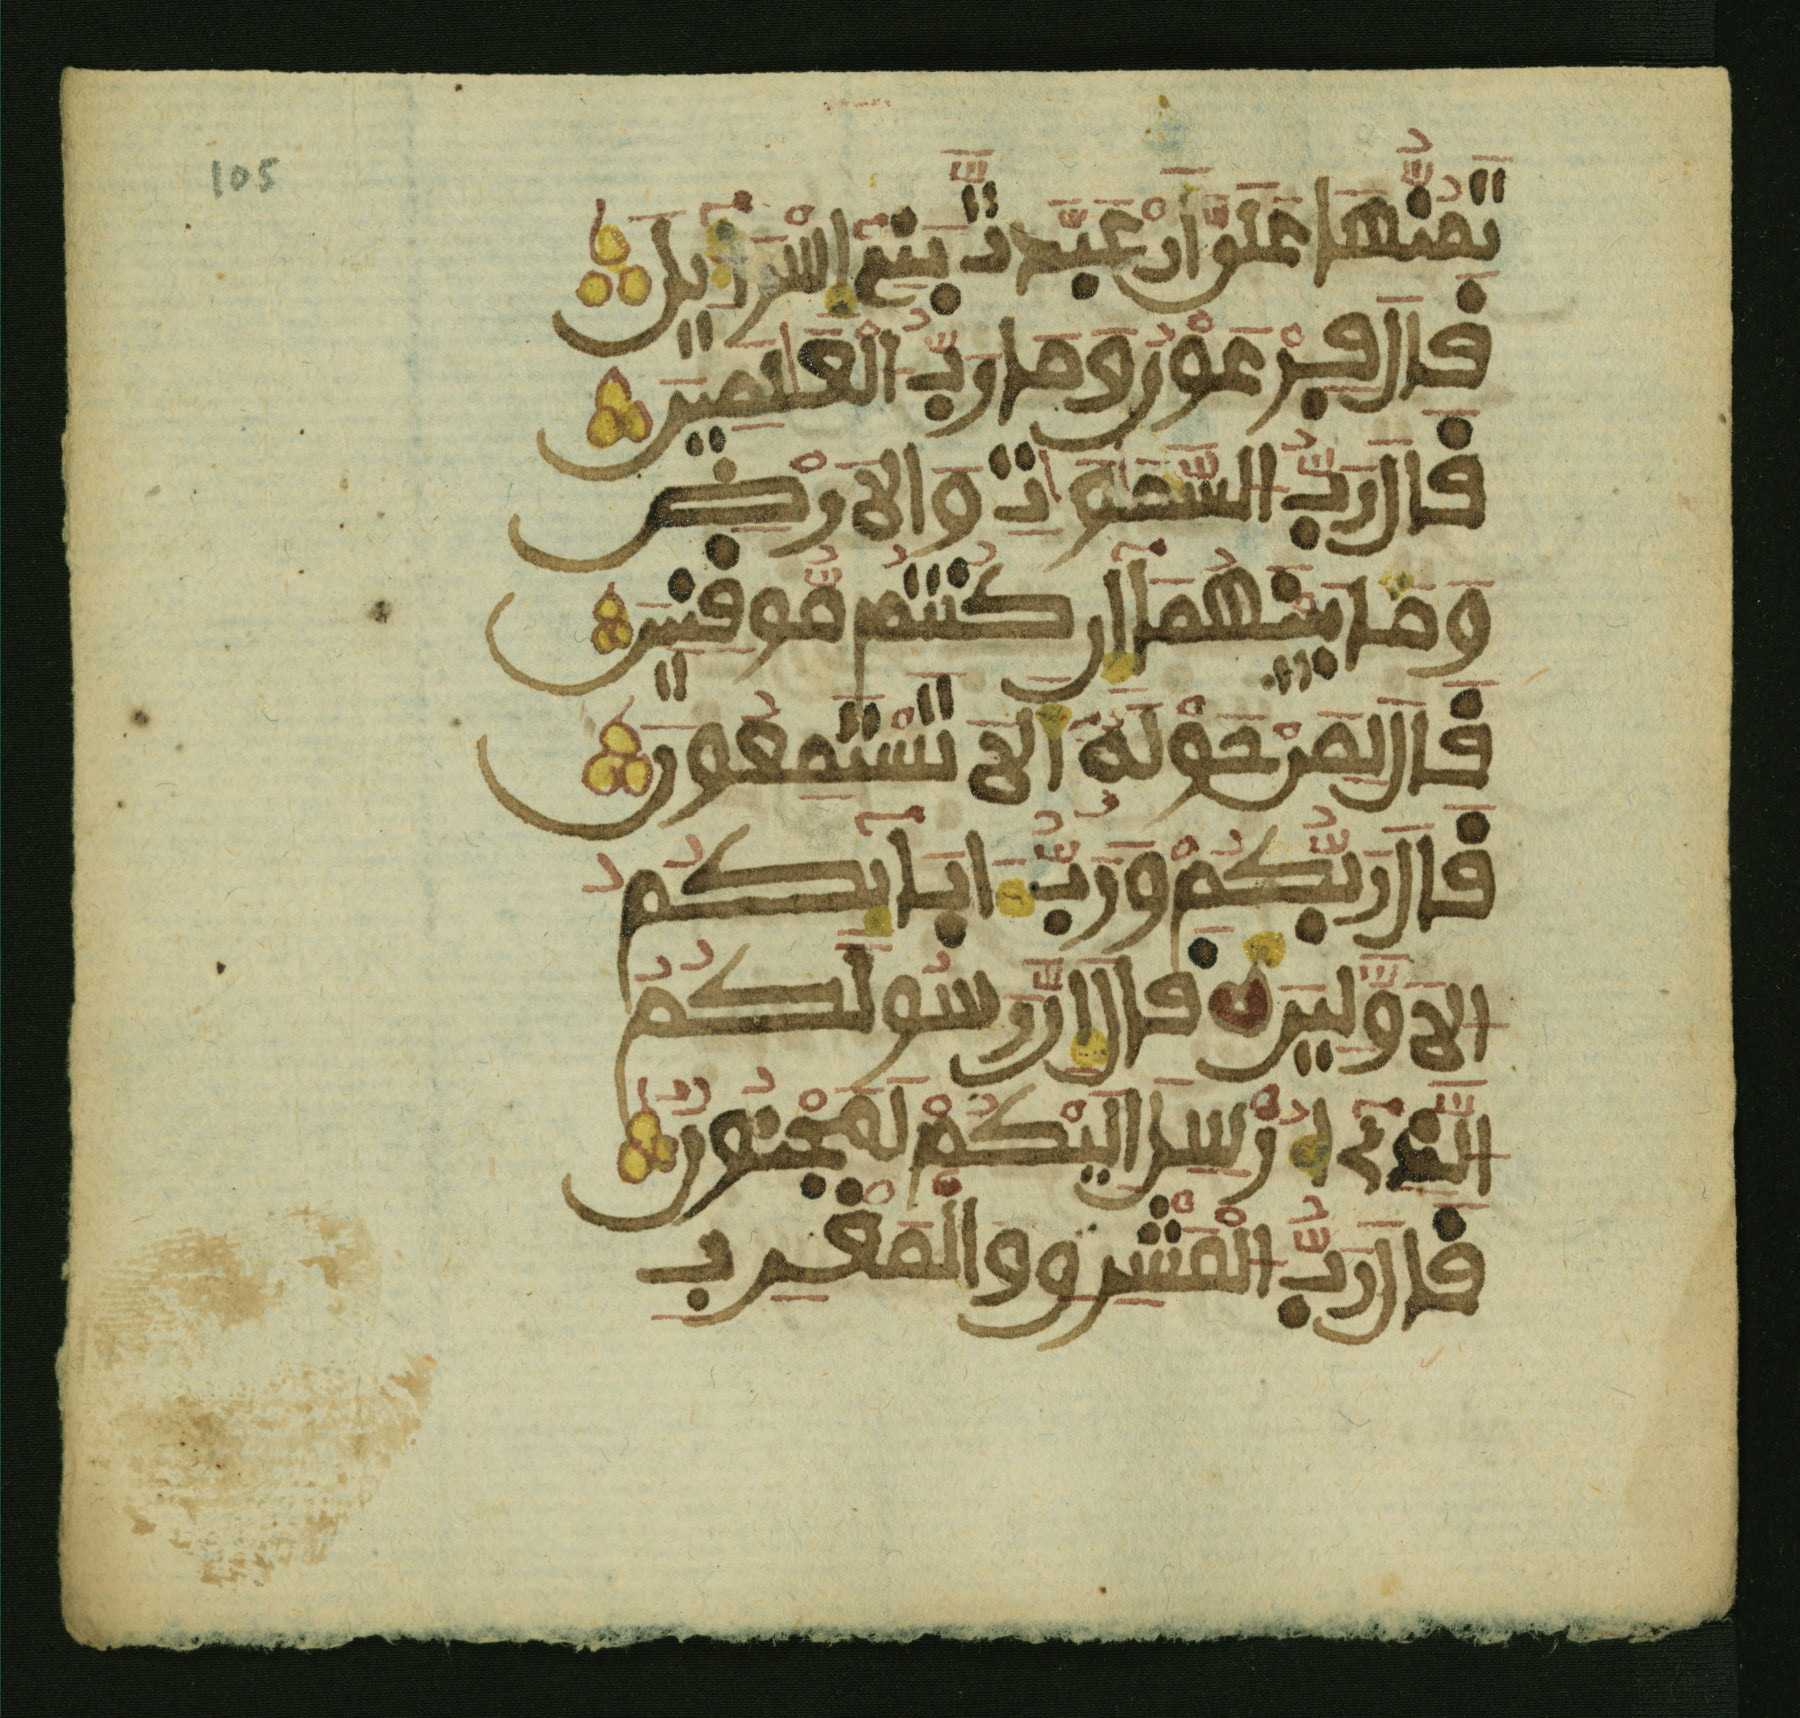 105
تَمُنُّهَا عَلَىَّ أَنْ عَبَّدتَّ بَنِىٓ إِسْرَآءِيلَ
قَالَ فِرْعَوْنُ وَمَا رَبُّ الْعَٰلَمِينَ
قَالَ رَبُّ السَّمَٰوَٰتِ وَالَارْضِ
وَمَا بَيْنَهُمَآ إِن كُنتُم مُّوقِنِينَ
قَالَ لِمَنْ حَوْلَهُۥٓ أَلَا تَسْتَمِعُونَ
قَالَ رَبُّكُمْ وَرَبُّ ءَابَآئِكُمُ
الَاوَّلِينَ قَالَ إِنَّ رَسُولَكُمُ
الَّذِىٓ أُرْسِلَ إِلَيْكُمْ لَمَجْنُونٌ
قَالَ رَبُّ الْمَشْرِقِ وَالْمَغْرِبِ